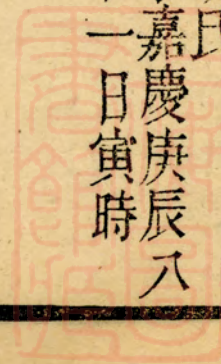 氏
嘉慶庚辰八
一日寅時